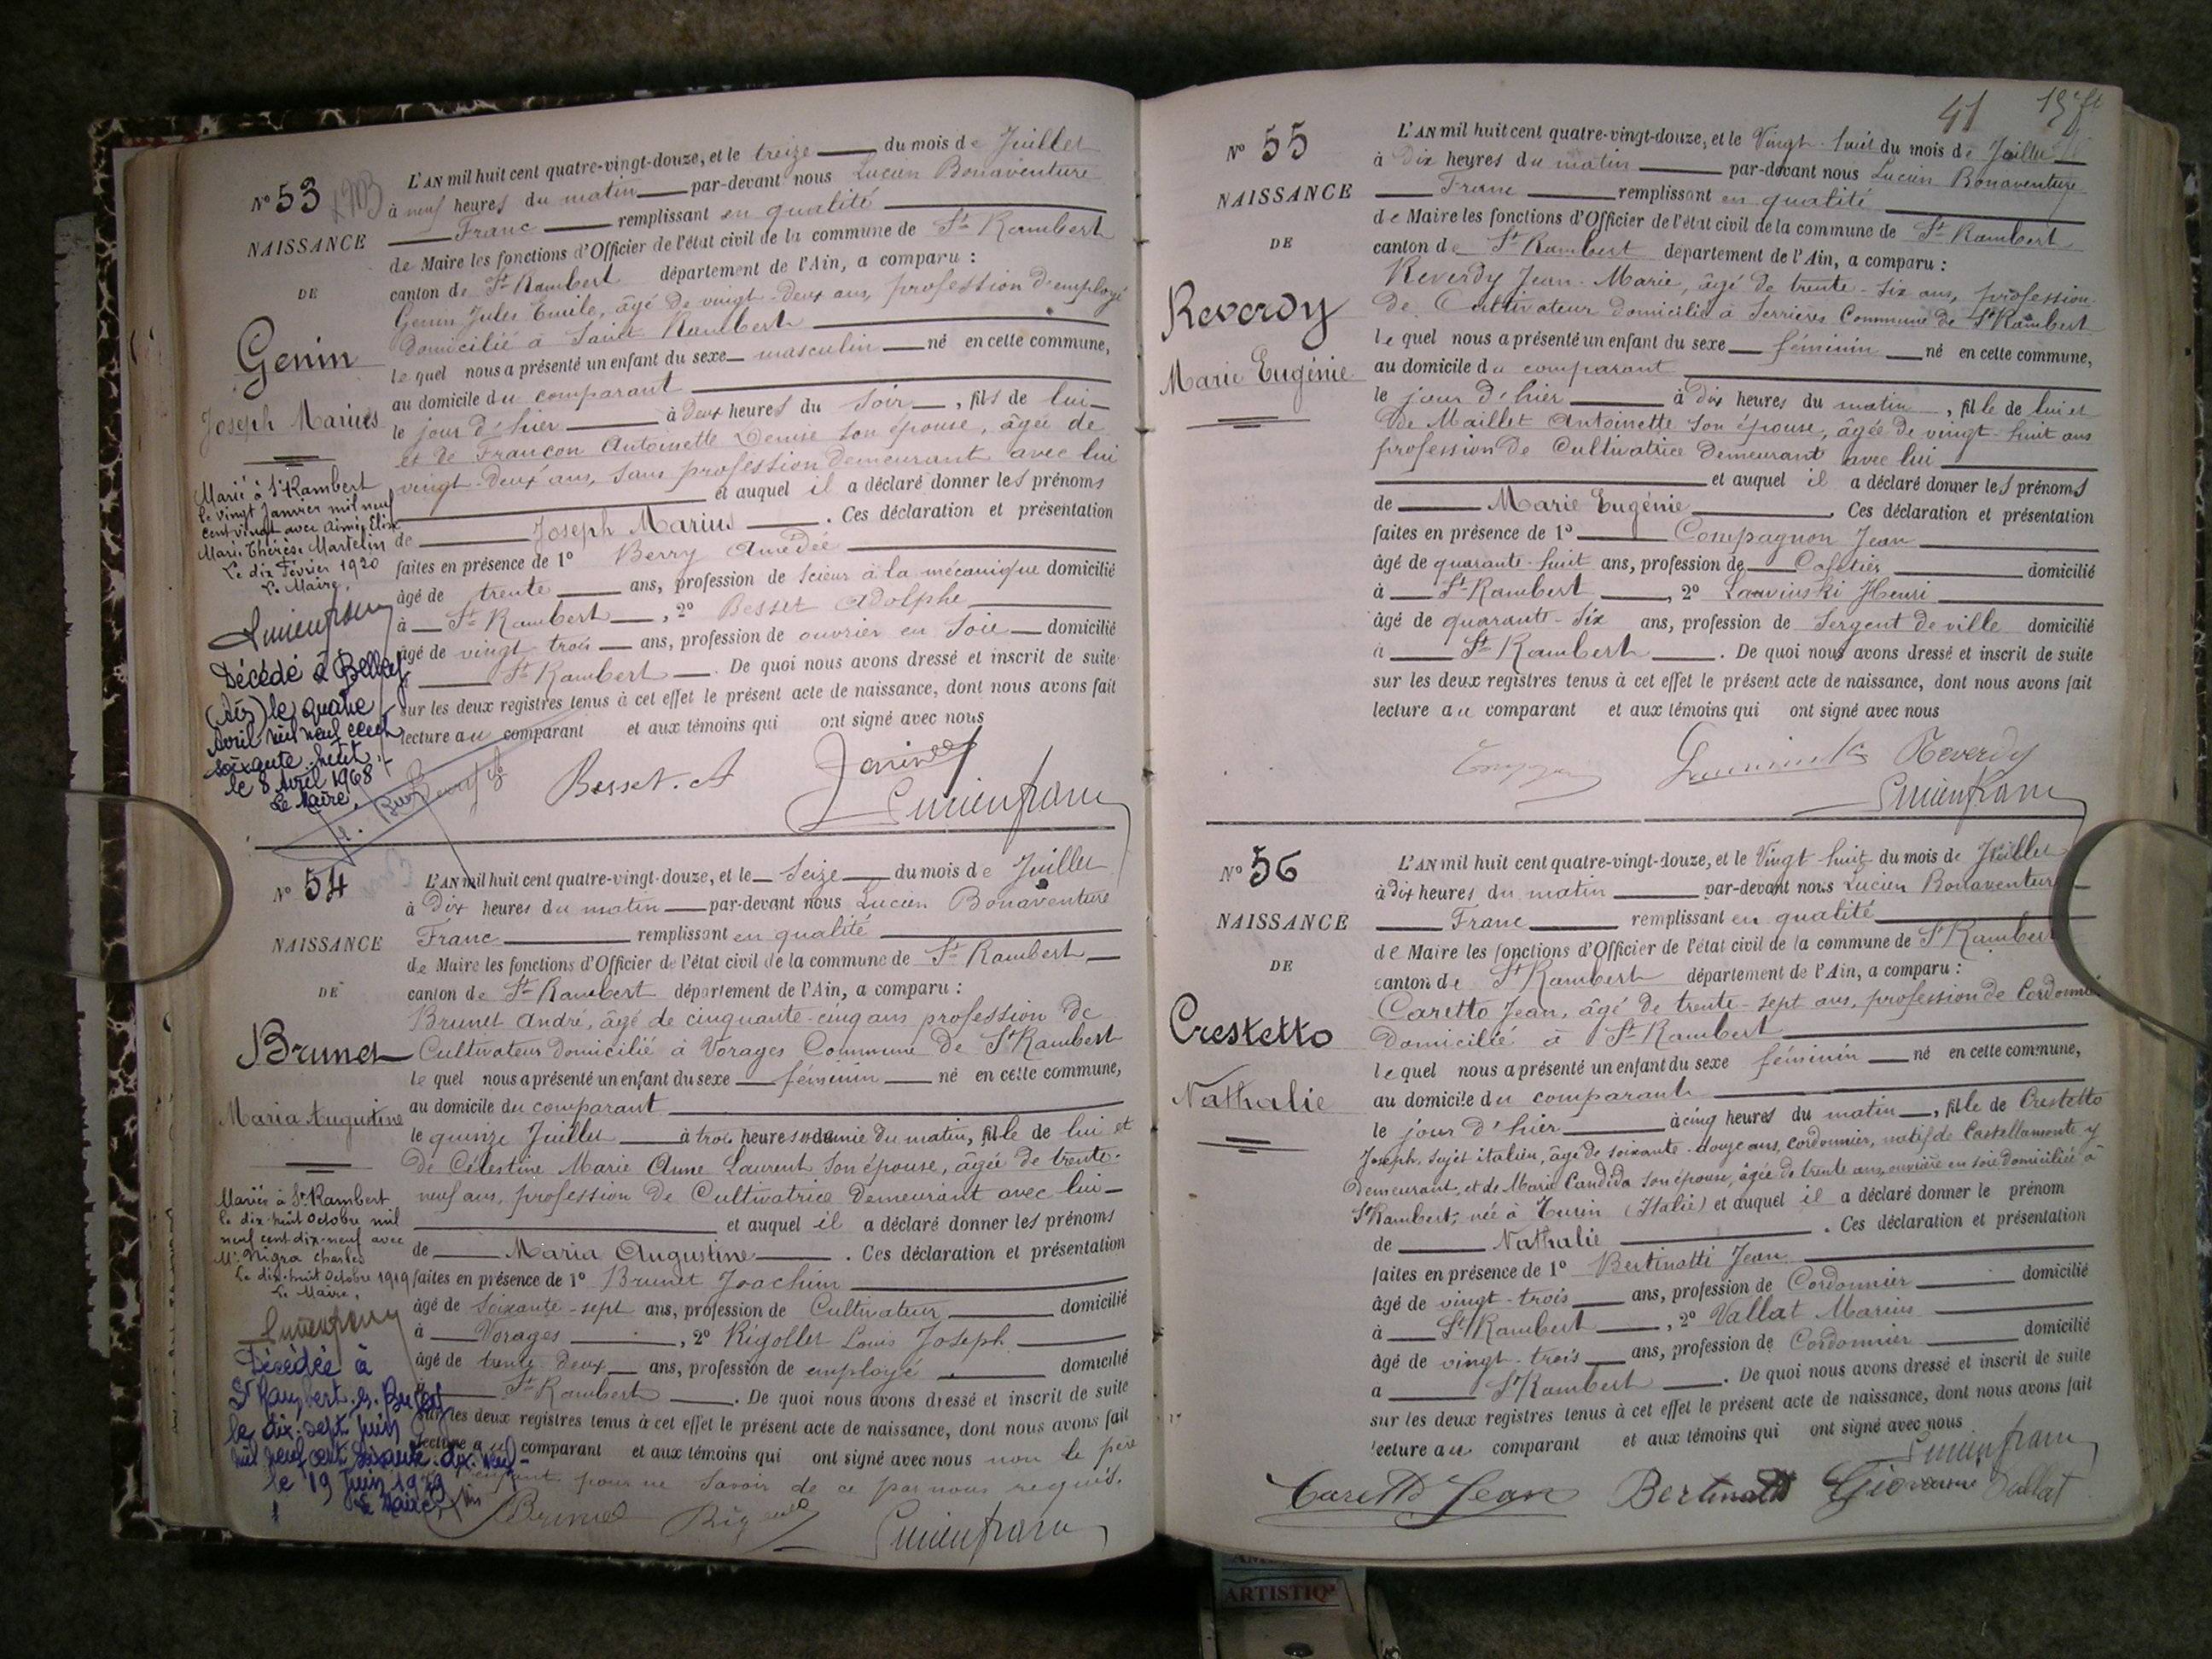 N° 53
NAISSANCE
DE
Genin
Joseph Marius
Marié à St Rambert
le vingt Janvier mil neuf
cent vingt avec Aimée Elise
Marie Thérèse Martelin
Le dix Février 1920
Le Maire,
Lucien franc
Décédé à Belley
(Ain) le quatre
Avril mil neuf cent
soixante-huit.
le 8 Avril 1968
Le Maire,
L'AN mil huit cent quatre-vingt-douze, et le treize du mois de Juillet
à neuf heures du matin par-devant nous Lucien Bonaventure
Franc remplissant en qualité
de Maire les fonctions d'Officier de l'état civil de la commune de St Rambert
canton de St Rambert département de l'Ain, a comparu :
Genin Jules Emile, âgé de vingt-deux ans, profession d'employé
domicilié à Saint Rambert
lequel nous a présenté un enfant du sexe masculin né en cette commune,
au domicile du comparant
le jour d'hier à deux heures du soir, fils de lui
et de Françon Antoinette Denise son épouse, âgée de
vingt-deux ans, sans profession demeurant avec lui
et auquel il a déclaré donner les prénoms
de Joseph Marius. Ces déclaration et présentation
faites en présence de 1° Berry Amédée
âgé de trente ans, profession de scieur à la mécanique domicilié
à St Rambert, 2° Besset Adolphe
âgé de vingt trois ans, profession de ouvrier en soie domicilié
St Rambert. De quoi nous avons dressé et inscrit de suite
sur les deux registres tenus à cet effet le présent acte de naissance, dont nous avons fait
lecture au comparant et aux témoins qui ont signé avec nous
Besset. A
Lucien franc
N° 54
NAISSANCE
DE
Brunet
Maria Augustine
Mariée à St Rambert
le dix-huit Octobre mil
neuf cent dix-neuf avec
Mr Nigra Charles
Le dix-huit Octobre 1919
Le Maire,
Lucien franc
Décédée à
St Rambert-en-Bugey
le dix-sept juin
mil neuf cent soixante-dix-neuf-
le 19 Juin 1979
Le Maire
L'AN mil huit cent quatre-vingt-douze, et le Seize du mois de Juillet
à Dix heures du matin par-devant nous Lucien Bonaventure
Franc remplissant en qualité
de Maire les fonctions d'Officier de l'état civil de la commune de St Rambert
canton de St Rambert département de l'Ain, a comparu :
Brunet André, âgé de cinquante-cinq ans profession de
Cultivateur domicilié à Vorages Commune de St Rambert
lequel nous a présenté un enfant du sexe féminin né en cette commune,
au domicile du comparant
le quinze Juillet à trois heures et demie du matin, fille de lui et
de Célestine Marie Anne Laurent son épouse, âgée de trente-
neuf ans, profession de Cultivatrice demeurant avec lui
et auquel il a déclaré donner les prénoms
de Maria Augustine. Ces déclaration et présentation
faites en présence de 1° Brunet Joachim
âgé de soixante-sept ans, profession de Cultivateur domicilié
à Vorages, 2° Rigollet Louis Joseph
âgé de trente deux ans, profession de employé domicilié
St Rambert. De quoi nous avons dressé et inscrit de suite
sur les deux registres tenus à cet effet le présent acte de naissance, dont nous avons fait
lecture au comparant et aux témoins qui ont signé avec nous non le père
de l'enfant pour ne savoir de ce par nous requis.
Brunet Lucien franc
41
N° 55
NAISSANCE
DE
Reverdy
Marie Eugénie
L'AN mil huit cent quatre-vingt-douze, et le Vingt-huit du mois de Juillet
à Dix heures du matin par-devant nous Lucien Bonaventure
Franc remplissant en qualité
de Maire les fonctions d'Officier de l'état civil de la commune de St Rambert
canton de St Rambert département de l'Ain, a comparu :
Reverdy Jean-Marie, âgé de trente-six ans, profession
de Cultivateur domicilié à Serrières Commune de St Rambert
lequel nous a présenté un enfant du sexe féminin né en cette commune,
au domicile du comparant
le jour d'hier à dix heures du matin, fille de lui et
de Maillet Antoinette son épouse, âgée de vingt-huit ans
profession de Cultivatrice demeurant avec lui
et auquel il a déclaré donner les prénoms
de Marie Eugénie. Ces déclaration et présentation
faites en présence de 1° Compagnon Jean
âgé de quarante-huit ans, profession de Cafetier domicilié
à St Rambert, 2° Henri
âgé de quarante-six ans, profession de Sergent de ville domicilié
à St Rambert. De quoi nous avons dressé et inscrit de suite
sur les deux registres tenus à cet effet le présent acte de naissance, dont nous avons fait
lecture au comparant et aux témoins qui ont signé avec nous
Reverdy
Lucien franc
N° 56
NAISSANCE
DE
Crestetto
Nathalie
L'AN mil huit cent quatre-vingt-douze, et le Vingt-huit du mois de Juillet
à dix heures du matin par-devant nous Lucien Bonaventure
Franc remplissant en qualité
de Maire les fonctions d'Officier de l'état civil de la commune de St Rambert
canton de St Rambert département de l'Ain, a comparu :
Caretto Jean, âgé de trente-sept ans, profession de Cordonnier
domicilié à St Rambert
lequel nous a présenté un enfant du sexe féminin né en cette commune,
au domicile du comparant
le jour d'hier à cinq heures du matin, fille de Crestetto
Joseph, sujet italien, âgé de soixante-douze ans, cordonnier, natif de Castellamonte y
demeurant, et de Maria Candida son épouse, âgée de trente ans, ouvrière en soie domiciliée à
St Rambert, née à Turin (Italie) et auquel il a déclaré donner le prénom
de Nathalie. Ces déclaration et présentation
faites en présence de 1° Bertinatti Jean
âgé de vingt-trois ans, profession de Cordonnier domicilié
à St Rambert, 2° Vallat Marius
âgé de vingt-trois ans, profession de Cordonnier domicilié
a St Rambert. De quoi nous avons dressé et inscrit de suite
sur les deux registres tenus à cet effet le présent acte de naissance, dont nous avons fait
lecture au comparant et aux témoins qui ont signé avec nous
Lucien franc
Caretto Jean Bertinatti Giovanni Vallat
ARTISTIQ